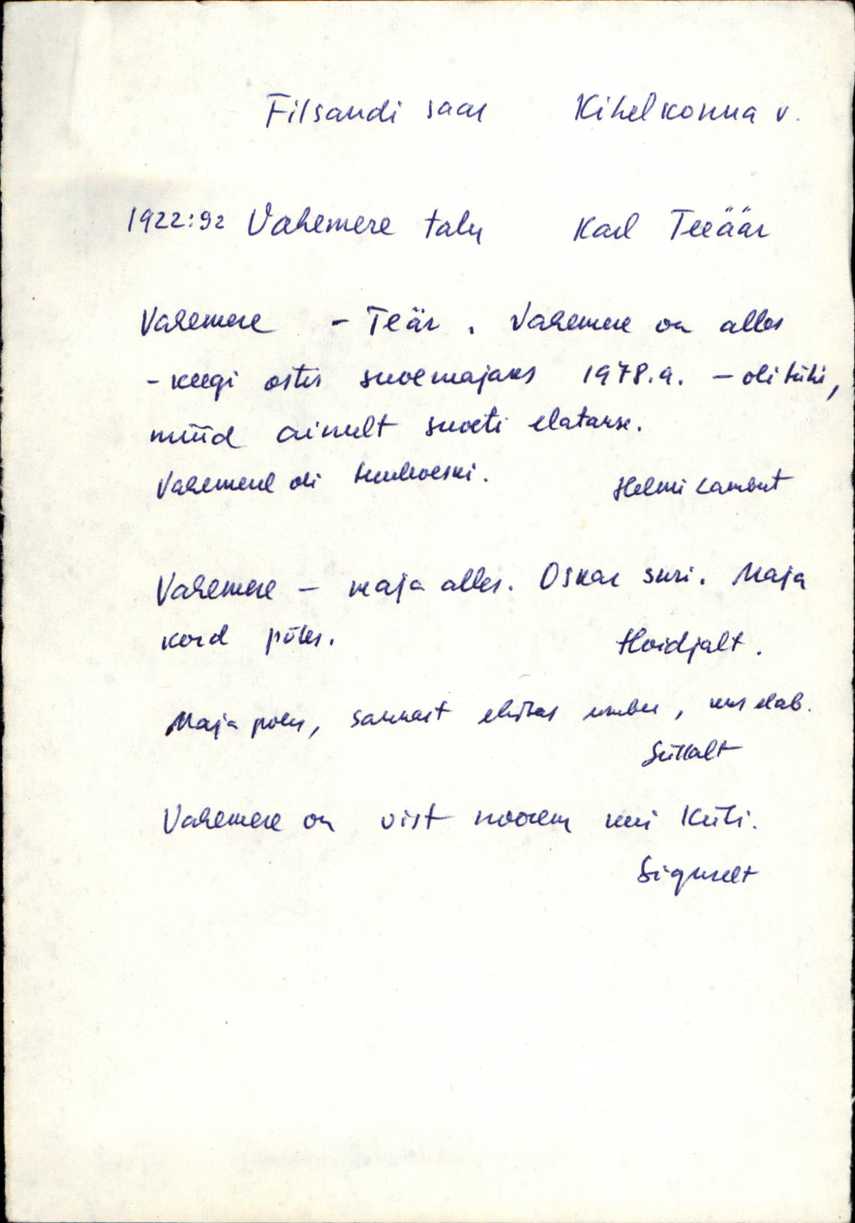 Filsandi saar Kihelkonna v.
1922:92 Vahemere talu Karl Teeäär
Vahemere - Teär. Vahemere on alles
- keegi ostis suvemajaks 1978.a. - oli tühi,
nüüd ainult suveti elatakse.
Vahemerel oli tuuleveski. Helmi Lambut
Vahemere - maja alles. Oskar suri. Maja
kord põles. Hoidjalt.
Maja põles, saunast ehitas umber, uus elab.
Vahemere on vist noorem kui Küti.